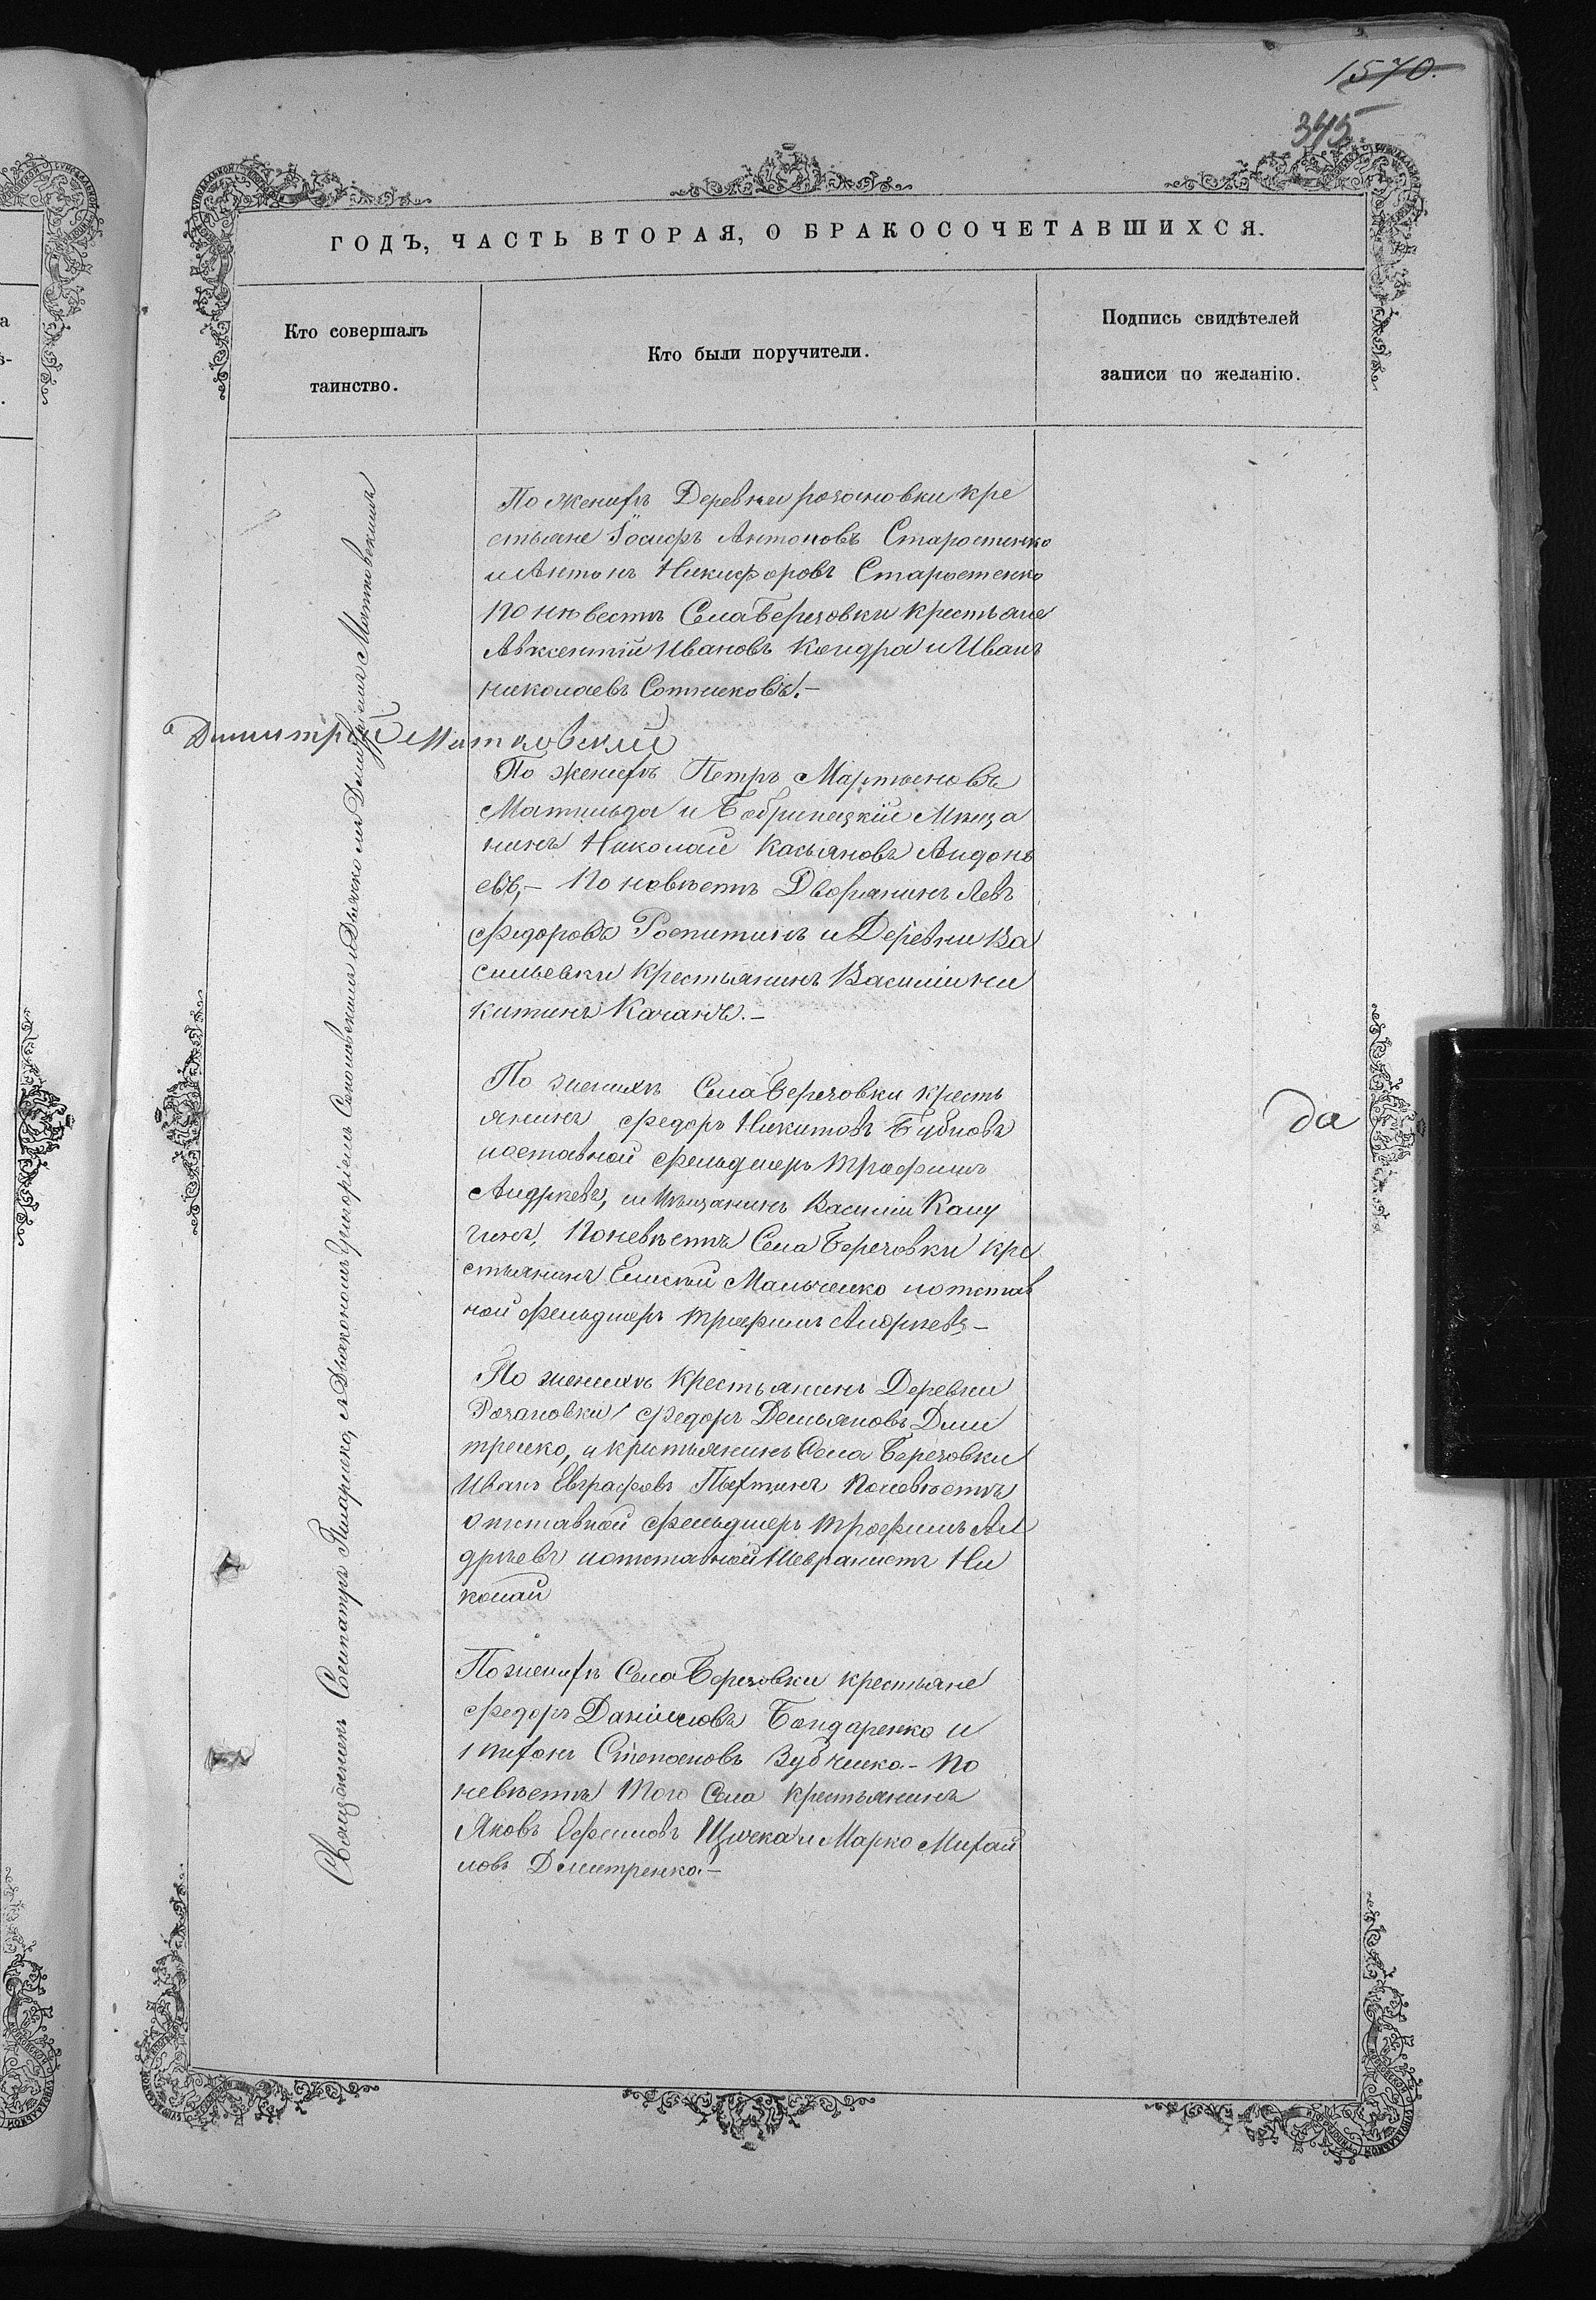 1570.
345
ГОДЪ, ЧАСТЬ ВТОРАЯ, О БРАКОСОЧЕТАВШИХСЯ.
Кто совершалъ
таинство.
Кто были поручители.
Подпись свидѣтелей
записи по желанію.
Священникъ Сосипатръ съ Діакономъ Григоріемъ и Дьячкомъ Димитріемъ Мятковскимъ
По женихѣ Деревни кре
стьяне Іосифъ Антоновъ Старостенко
и Антонъ Никифоровъ Старостенко
по невестѣ Села Березовки крестьяне
Авксентій Ивановъ Кондра и Иванъ
николаевъ Сотниковъ.—
Димитрій Мятковскій
По женихѣ Петръ Мартыновъ
Матильда и Бобринецкій Мѣща
нинъ Николай Касьяновъ Андонь
евъ,— По невѣстѣ Дворянинъ Левъ
Федоровъ и Деревни Ва
сильевки крестьянинъ Василій Ни
китинъ Качанъ.—
По женихѣ Села Березовки кресть
янинъ Федоръ Никитовъ Бубновъ
фельдшеръ Трофимъ
Андреевъ, и Мѣщанинъ Василій Калу
гинъ, По невѣстѣ Села Березовки кре
стьянинъ Елисей Мальченко и отстав
ной Фельдшеръ Трофимъ Андреевъ—
По женихѣ Крестьянинъ Деревни
Федоръ Демьяновъ Дми
тренко, и крестьянинъ Села Березовки
Иванъ Евграфовъ По невѣстѣ
отставной фельдшеръ Трофимъ Ан
дреевъ и отставной Ни
колай
По женихѣ Села Березовки крестьяне
Федоръ Даниловъ Бондаренко и
Степановъ Зубченко— По
невѣстѣ Того Села Крестьянинъ
Яковъ Ефимовъ и Марко Михай
ловъ Дмитренко.—
да